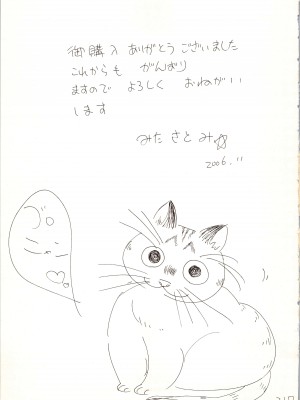 御購入 ありがとう ございました
これからも がんばり
ますので よろしく おねがい
します
みた さとみ☆
2006. 11